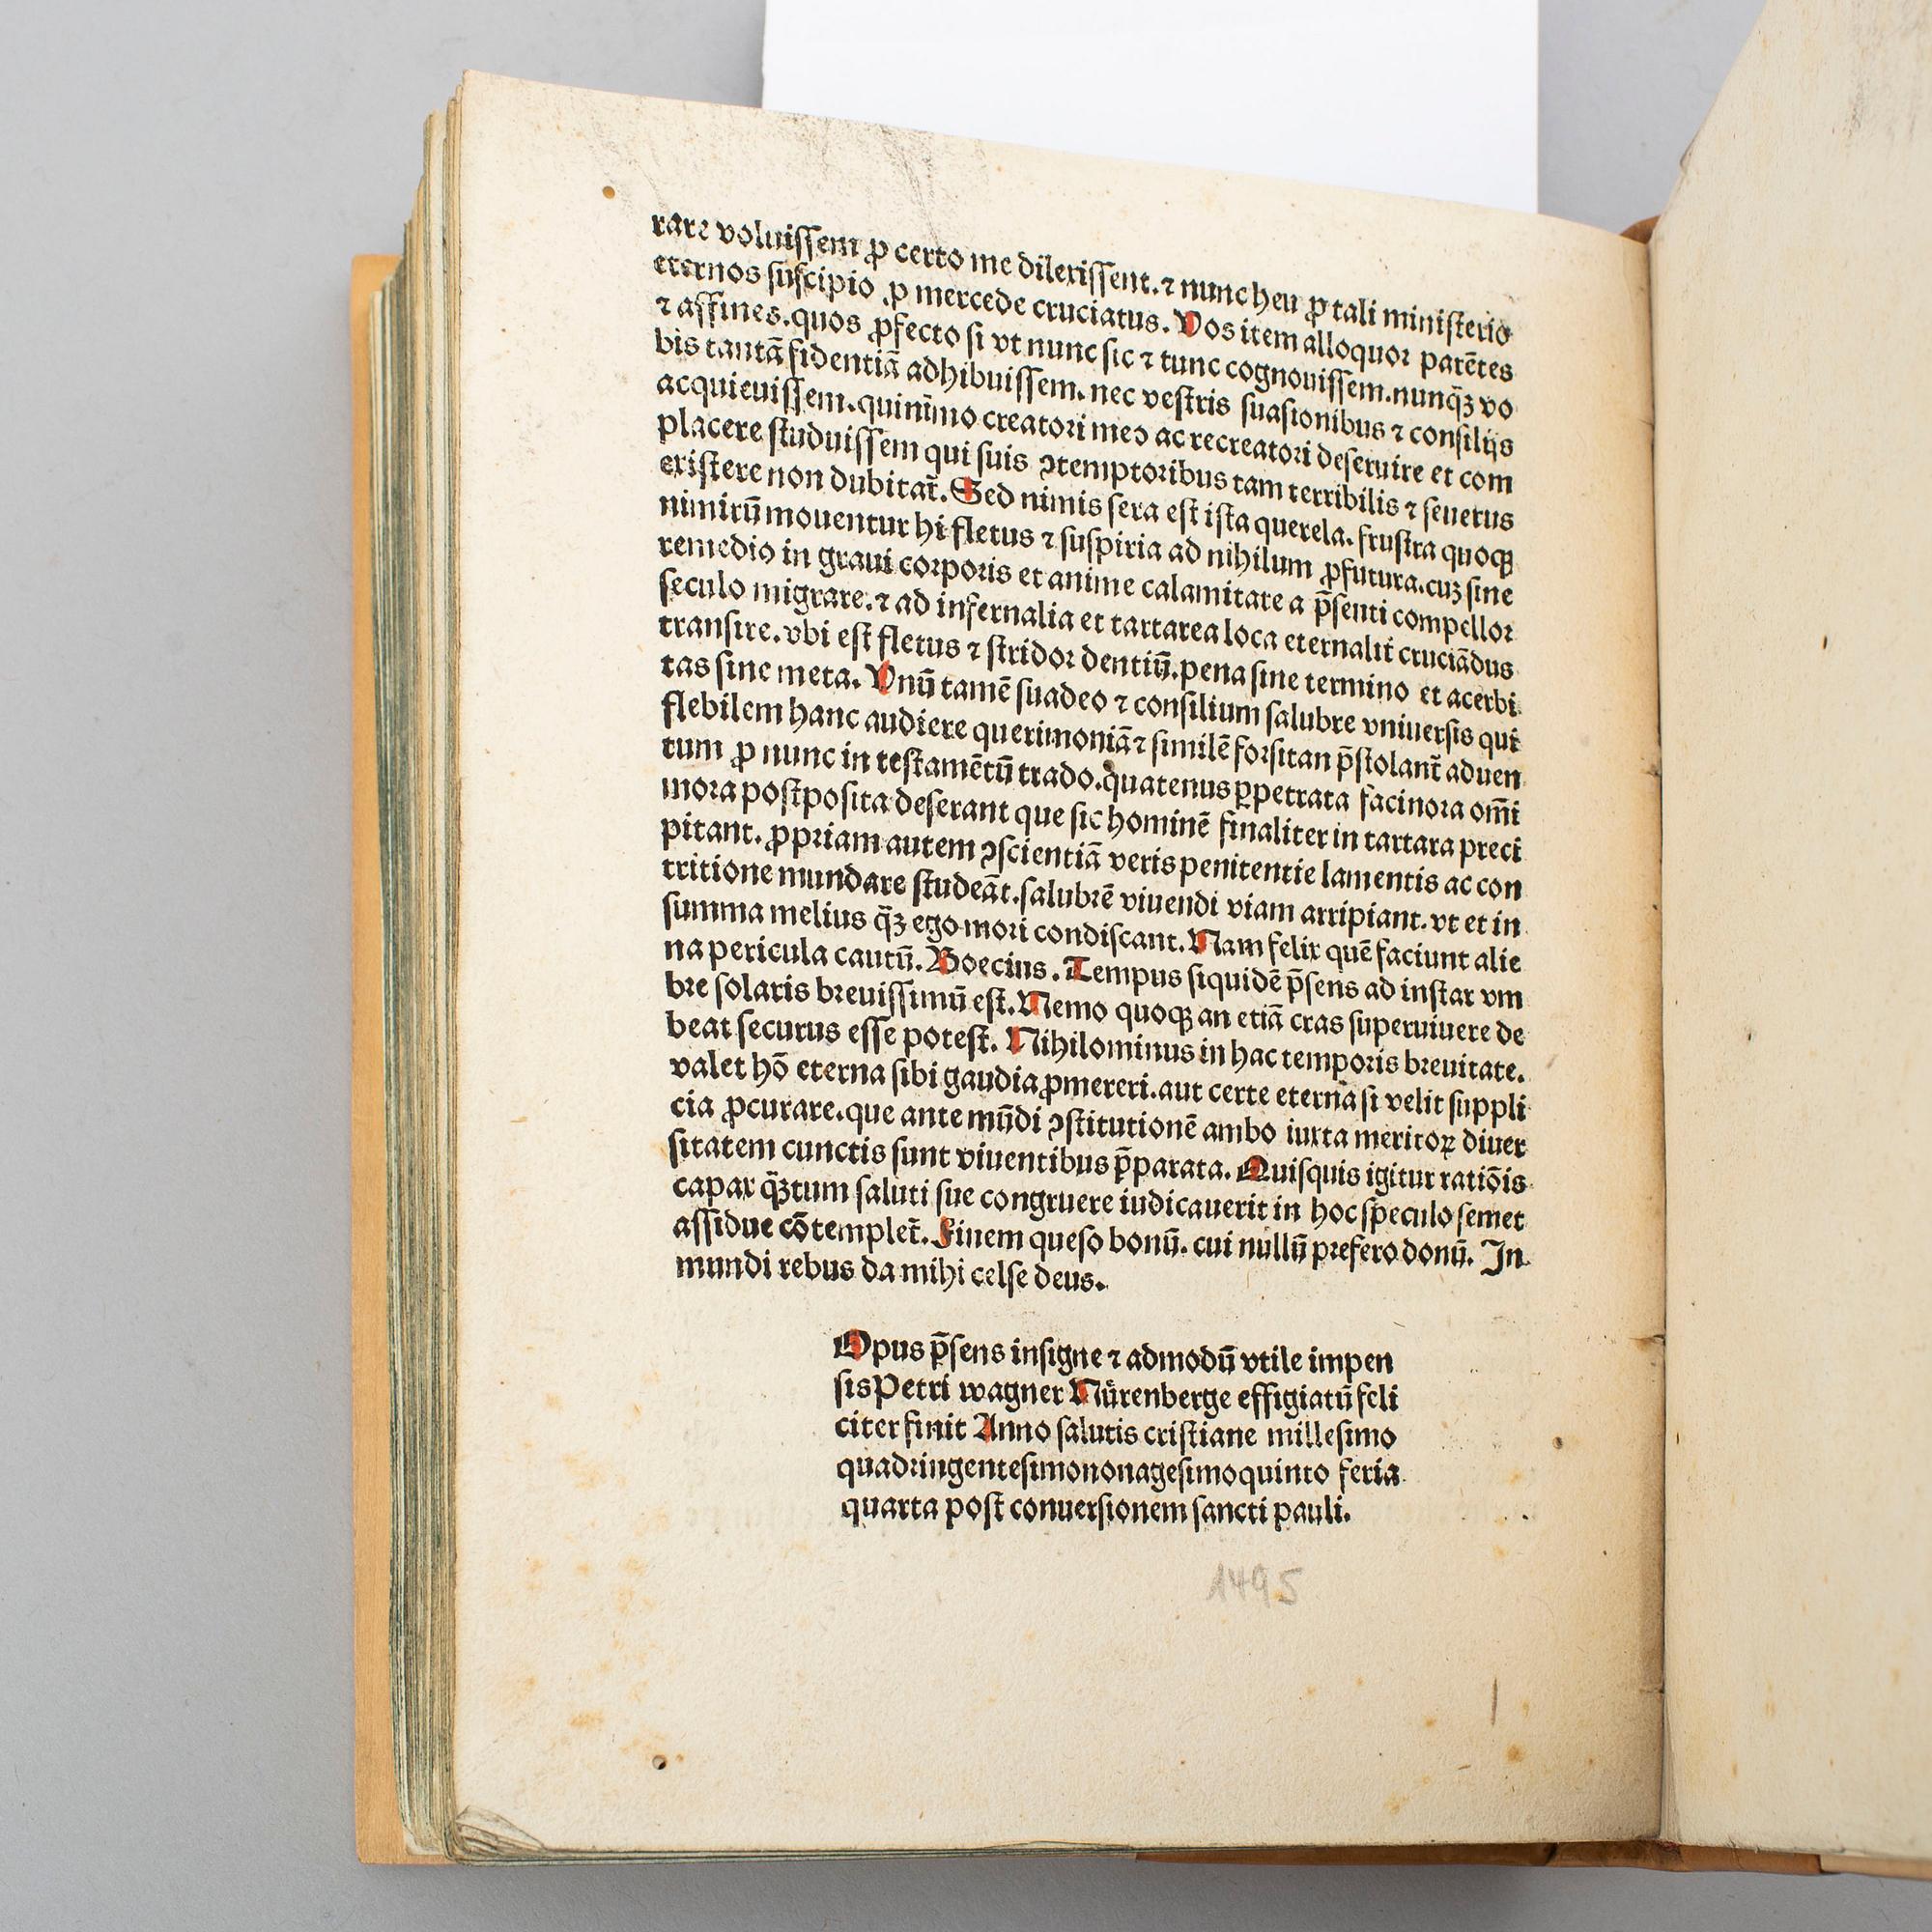 rare voluissem ꝓ certo me dilexissent. ⁊ nunc heu ꝓ tali ministerio
eternos suscipio .p mercede cruciatus. Vos item alloquor parētes
⁊ affines. quos ꝓfecto si vt nunc sic ⁊ tunc cognouissem. nunq̃ꝫ vo
bis tantā fidentiā adhibuissem. nec vestris suasionibus ⁊ consilijs
acquieuissem. quinīmo creatori meo ac recreatori deseruire et com
placere studuissem qui suis ꝯtemptoribus tam terribilis ⁊ seuerus
existere non dubitat̄. Sed nimis sera est ista querela. frustra quoqꝫ
nimirū mouentur hi fletus ⁊ suspiria ad nihilum ꝓfutura. cuꝫ sine
remedio in graui corporis et anime calamitate a p̄senti compellor
seculo migrare. ⁊ ad infernalia et tartarea loca eternalit̄ cruciādus
transire. vbi est fletus ⁊ stridor dentiū. pena sine termino et acerbi
tas sine meta. Vnū tamē suadeo ⁊ consilium salubre vniuersis qui
flebilem hanc audiere querimoniā ⁊ similē forsitan p̄stolant̄ aduen
tum ꝓ nunc in testamētū trado. quatenus ꝑpetrata facinora om̄i
mora postposita deserant que sic hominē finaliter in tartara preci
pitant. ꝓpriam autem ꝯscientiā veris penitentie lamentis ac con
tritione mundare studeāt. salubrē viuendi viam arripiant. vt et in
summa melius q̃ꝫ ego mori condiscant. Nam felix quē faciunt alie
na pericula cautū. Boecius. Tempus siquidē p̄sens ad instar vm
bre solaris breuissimū est. Nemo quoqꝫ an etiā cras superuiuere de
beat securus esse potest. Nihilominus in hac temporis breuitate.
valet hō eterna sibi gaudia ꝓmereri. aut certe eterna si velit suppli
cia ꝓcurare. que ante mūdi ꝯstitutionē ambo iuxta meritoꝝ diuer
sitatem cunctis sunt viuentibus p̄parata. Quisquis igitur ratiōis
capax q̃ꝫtum saluti sue congruere iudicauerit in hoc speculo semet
assidue cōtemplet̄. Finem queso bonū. cui nullū prefero donū. In
mundi rebus da mihi celse deus.
Opus p̄sens insigne ⁊ admodū vtile impen
sis Petri wagner Nürenberge effigiatū feli
citer finit Anno salutis cristiane millesimo
quadringentesimononagesimoquinto feria
quarta post conuersionem sancti pauli.
1495